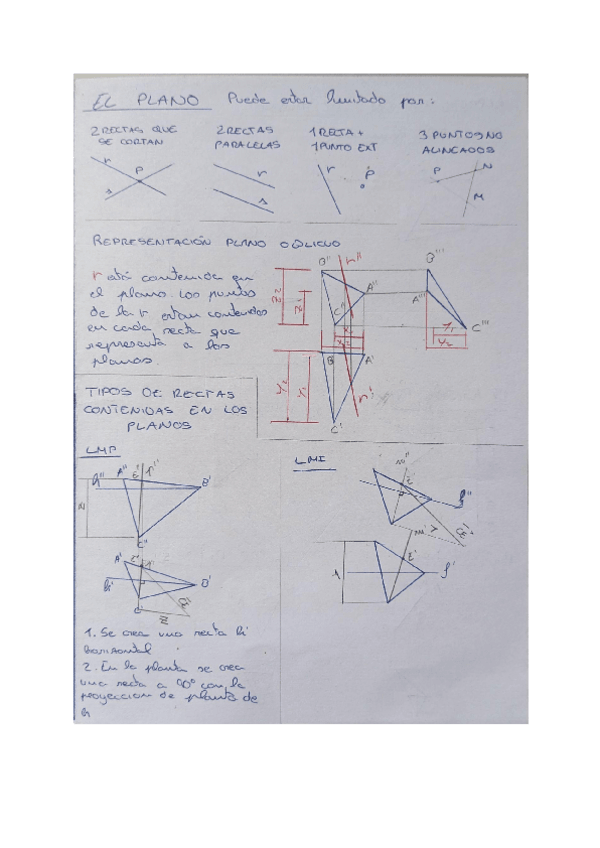 EL PLANO Puede estar limitado por:
2 RECTAS QUE SE CORTAN
2 RECTAS PARALELAS
1 RECTA + 1 PUNTO EXT
3 PUNTOS NO ALINEADOS
r P s
r s
r P
P N M
REPRESENTACIÓN PLANO OBLICUO
r está contenida en
el plano. Los puntos
de la r estan contenidos
en cada recta que
representa a los
planos.
B" r" A" C"
B''' A''' C'''
Z2 Z1
Y1
Y2
B' A' r' C'
Y2 Y1
TIPOS DE RECTAS
CONTENIDAS EN LOS
PLANOS
LMP
LMI
A" B' C"
A' B' C'
Z
m"
m'
1. Se crea una recta h'
horizontal
2. En la planta se crea
una recta a 90° con la
proyeccion de planta de
h